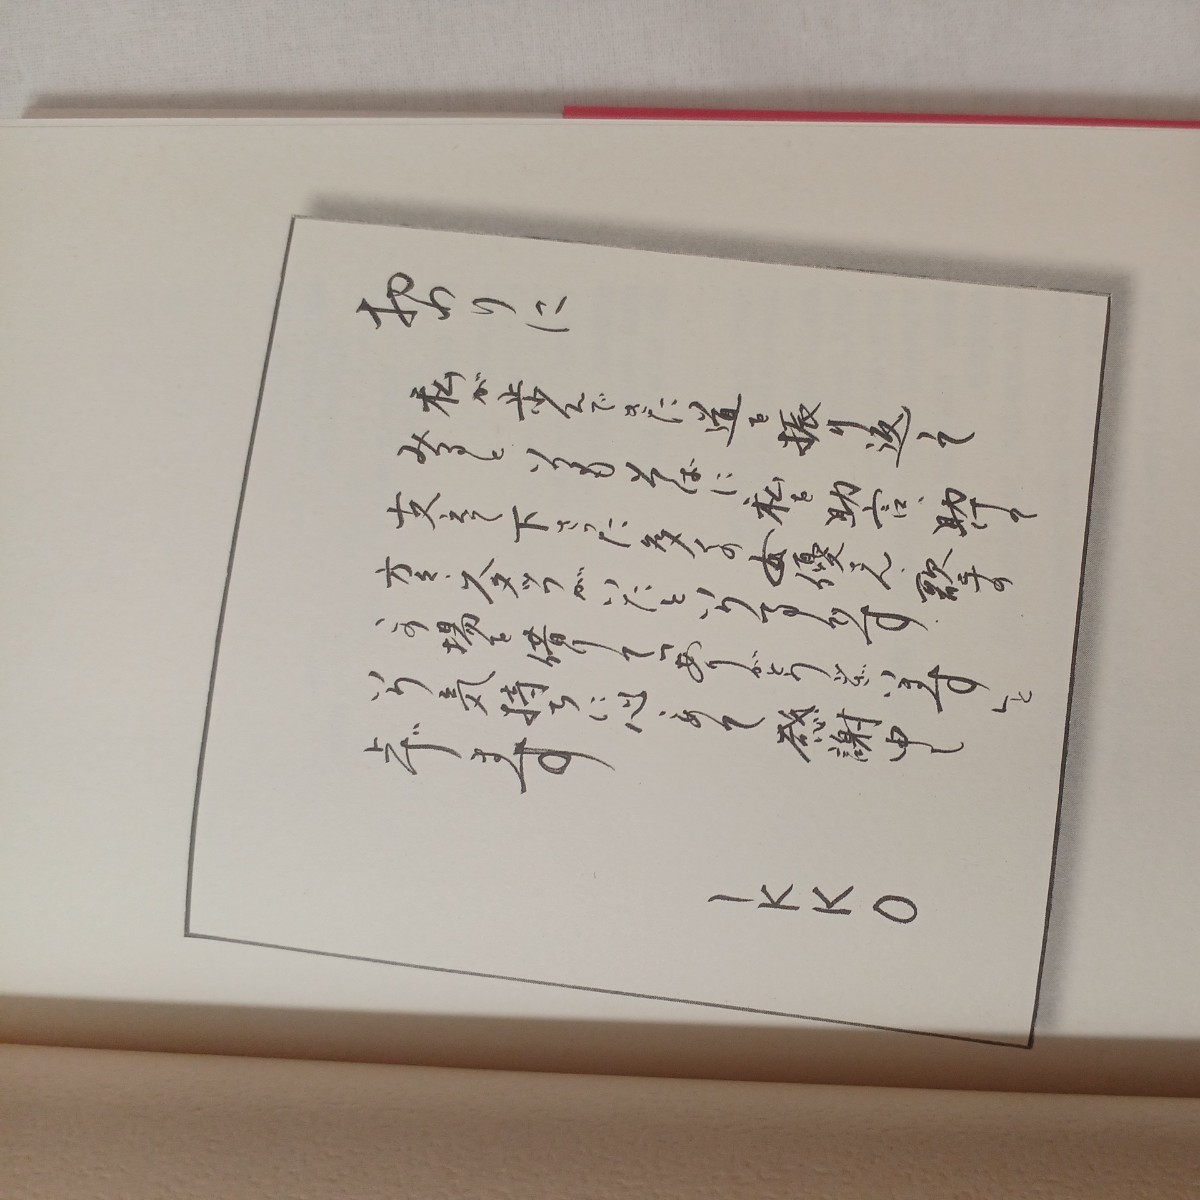 おわりに
私が歩んできた道を振り返って
みるといつもそばに私を助言、助けて
支えて下さった多くの女優さん、歌手の
方々、スタッフがいたといつも思います
この場を借りて「ありがとうございます」と
いう気持ちに心こめて感謝申し
上げます
IKKO